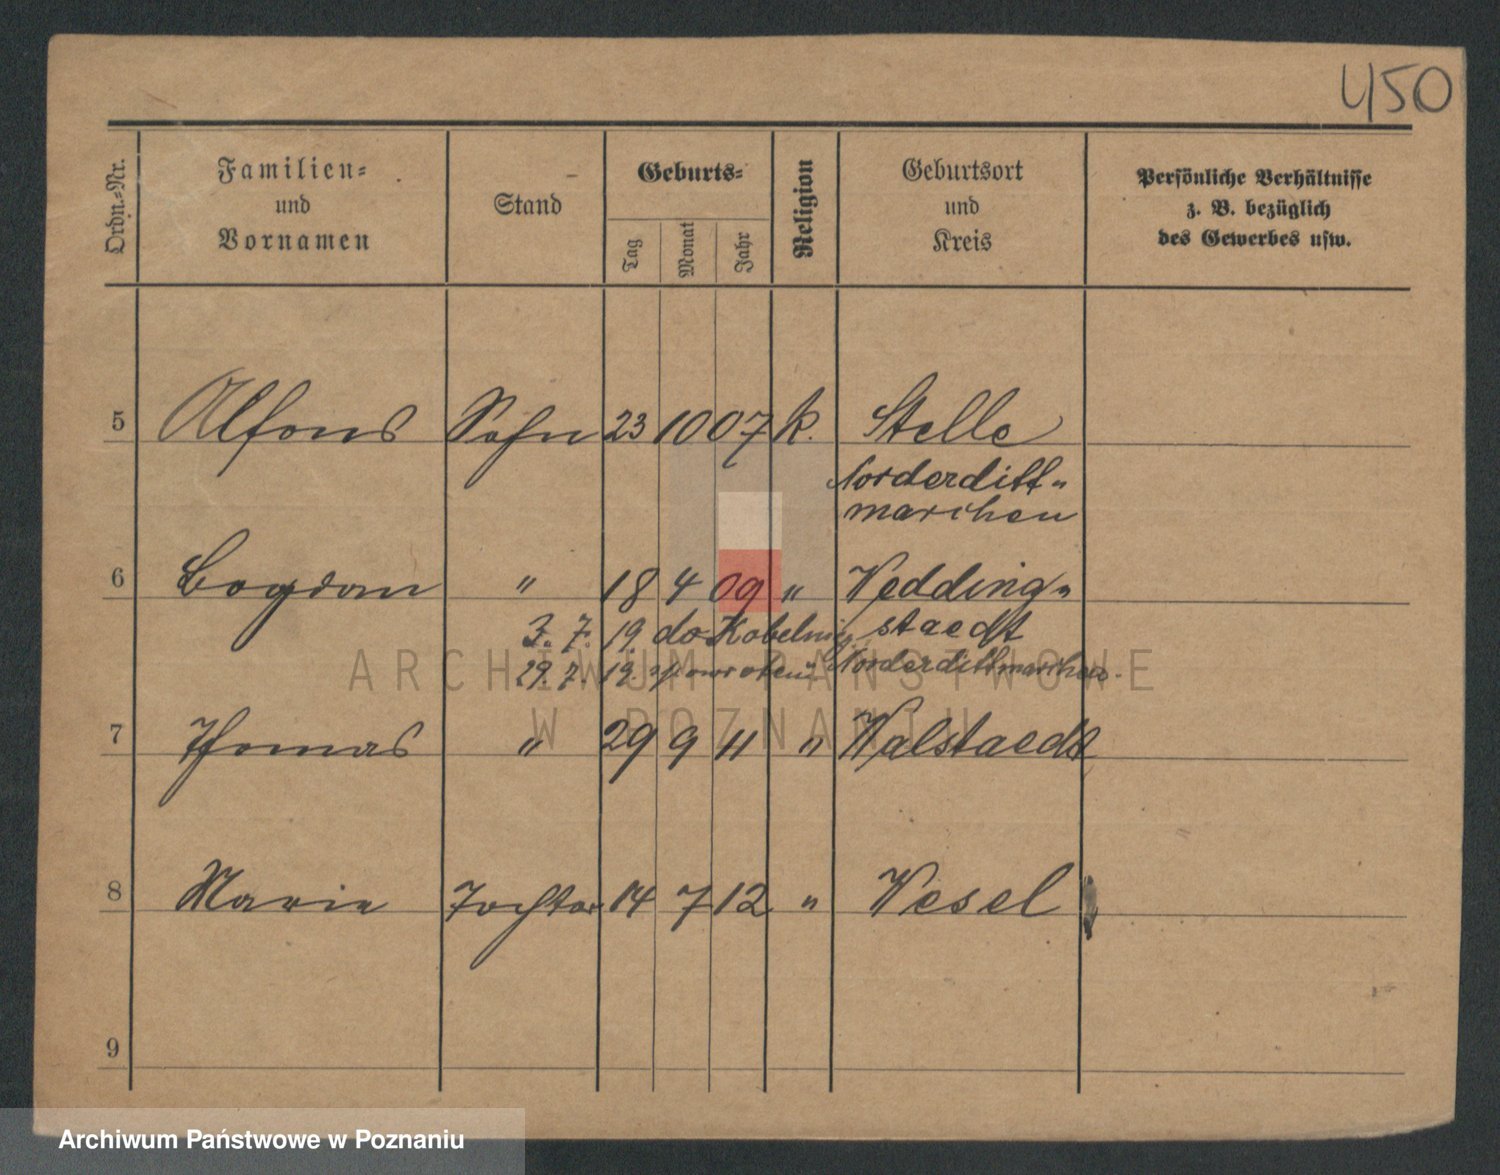 450
Ordn.-Nr. Familien= und Vornamen Stand Geburts= Tag Monat Jahr Religion Geburtsort und Kreis Persönliche Verhältnisse z. B. bezüglich des Gewerbes usw.
5 Alfons Sohn 23 10 07 k. Stelle
Norderditt=
marschen
6 Bogdan " 18 4 09 " Wedding=
3. 7. 19. do Kobelnicy staedt
29. 7. 19. z powrotem Norderdittmarschen.
ARCHIWUM PAŃSTWOWE
W POZNANIU
7 Thomas " 29 9 11 " Walstaedt
8 Marie Tochter 14 7 12 " Wesel
9
Archiwum Państwowe w Poznaniu